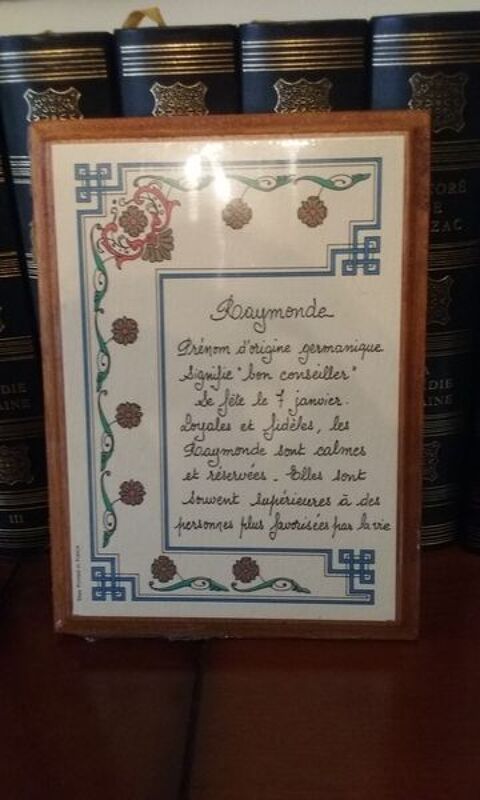 Raymonde
Prénom d'origine germanique
Signifie "bon conseiller"
Se fête le 7 janvier.
Loyales et fidèles, les
Raymonde sont calmes
et réservées. Elles sont
souvent supérieures à des
personnes plus favorisées par la vie
Printed in France
ORÉ
E
ZAC
DIE
AINE
DIE
AINE
III